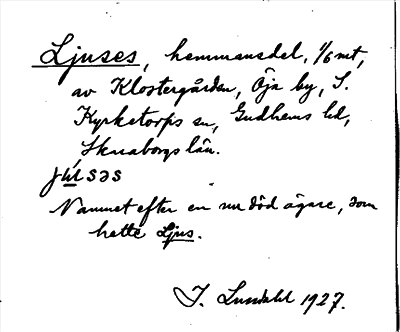 Ljuses, hemmansdel, 1/6 mt,
av Klostergården, Öja by, S.
Kyrketorps sn, Gudhems hd,
Skaraborgs län.
jʉ́səs
Namnet efter en nu död ägare, som
hette Ljus.
I. Lundahl 1927.